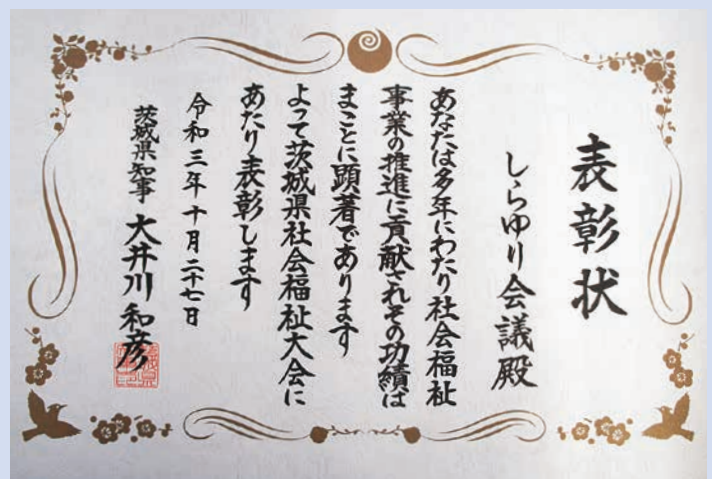 表彰状
しらゆり会議殿
あなたは多年にわたり社会福祉
事業の推進に貢献されその功績は
まことに顕著であります
よって茨城県社会福祉大会に
あたり表彰します
令和三年十月二十七日
茨城県知事 大井川和彦